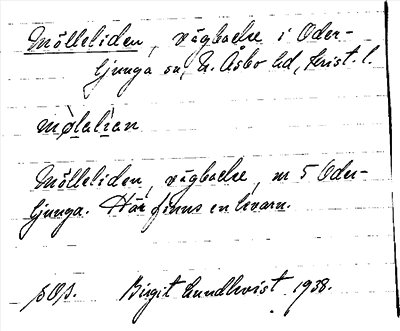 Mölleliden, vägbacke i Oder-
ljunga sn, N. Åsbo hd, Krist. l.
mølalian
Mölleliden, vägbacke, nr 5 Oder-
ljunga. Här finns en kvarn.
Birgit Lundkvist 1938.